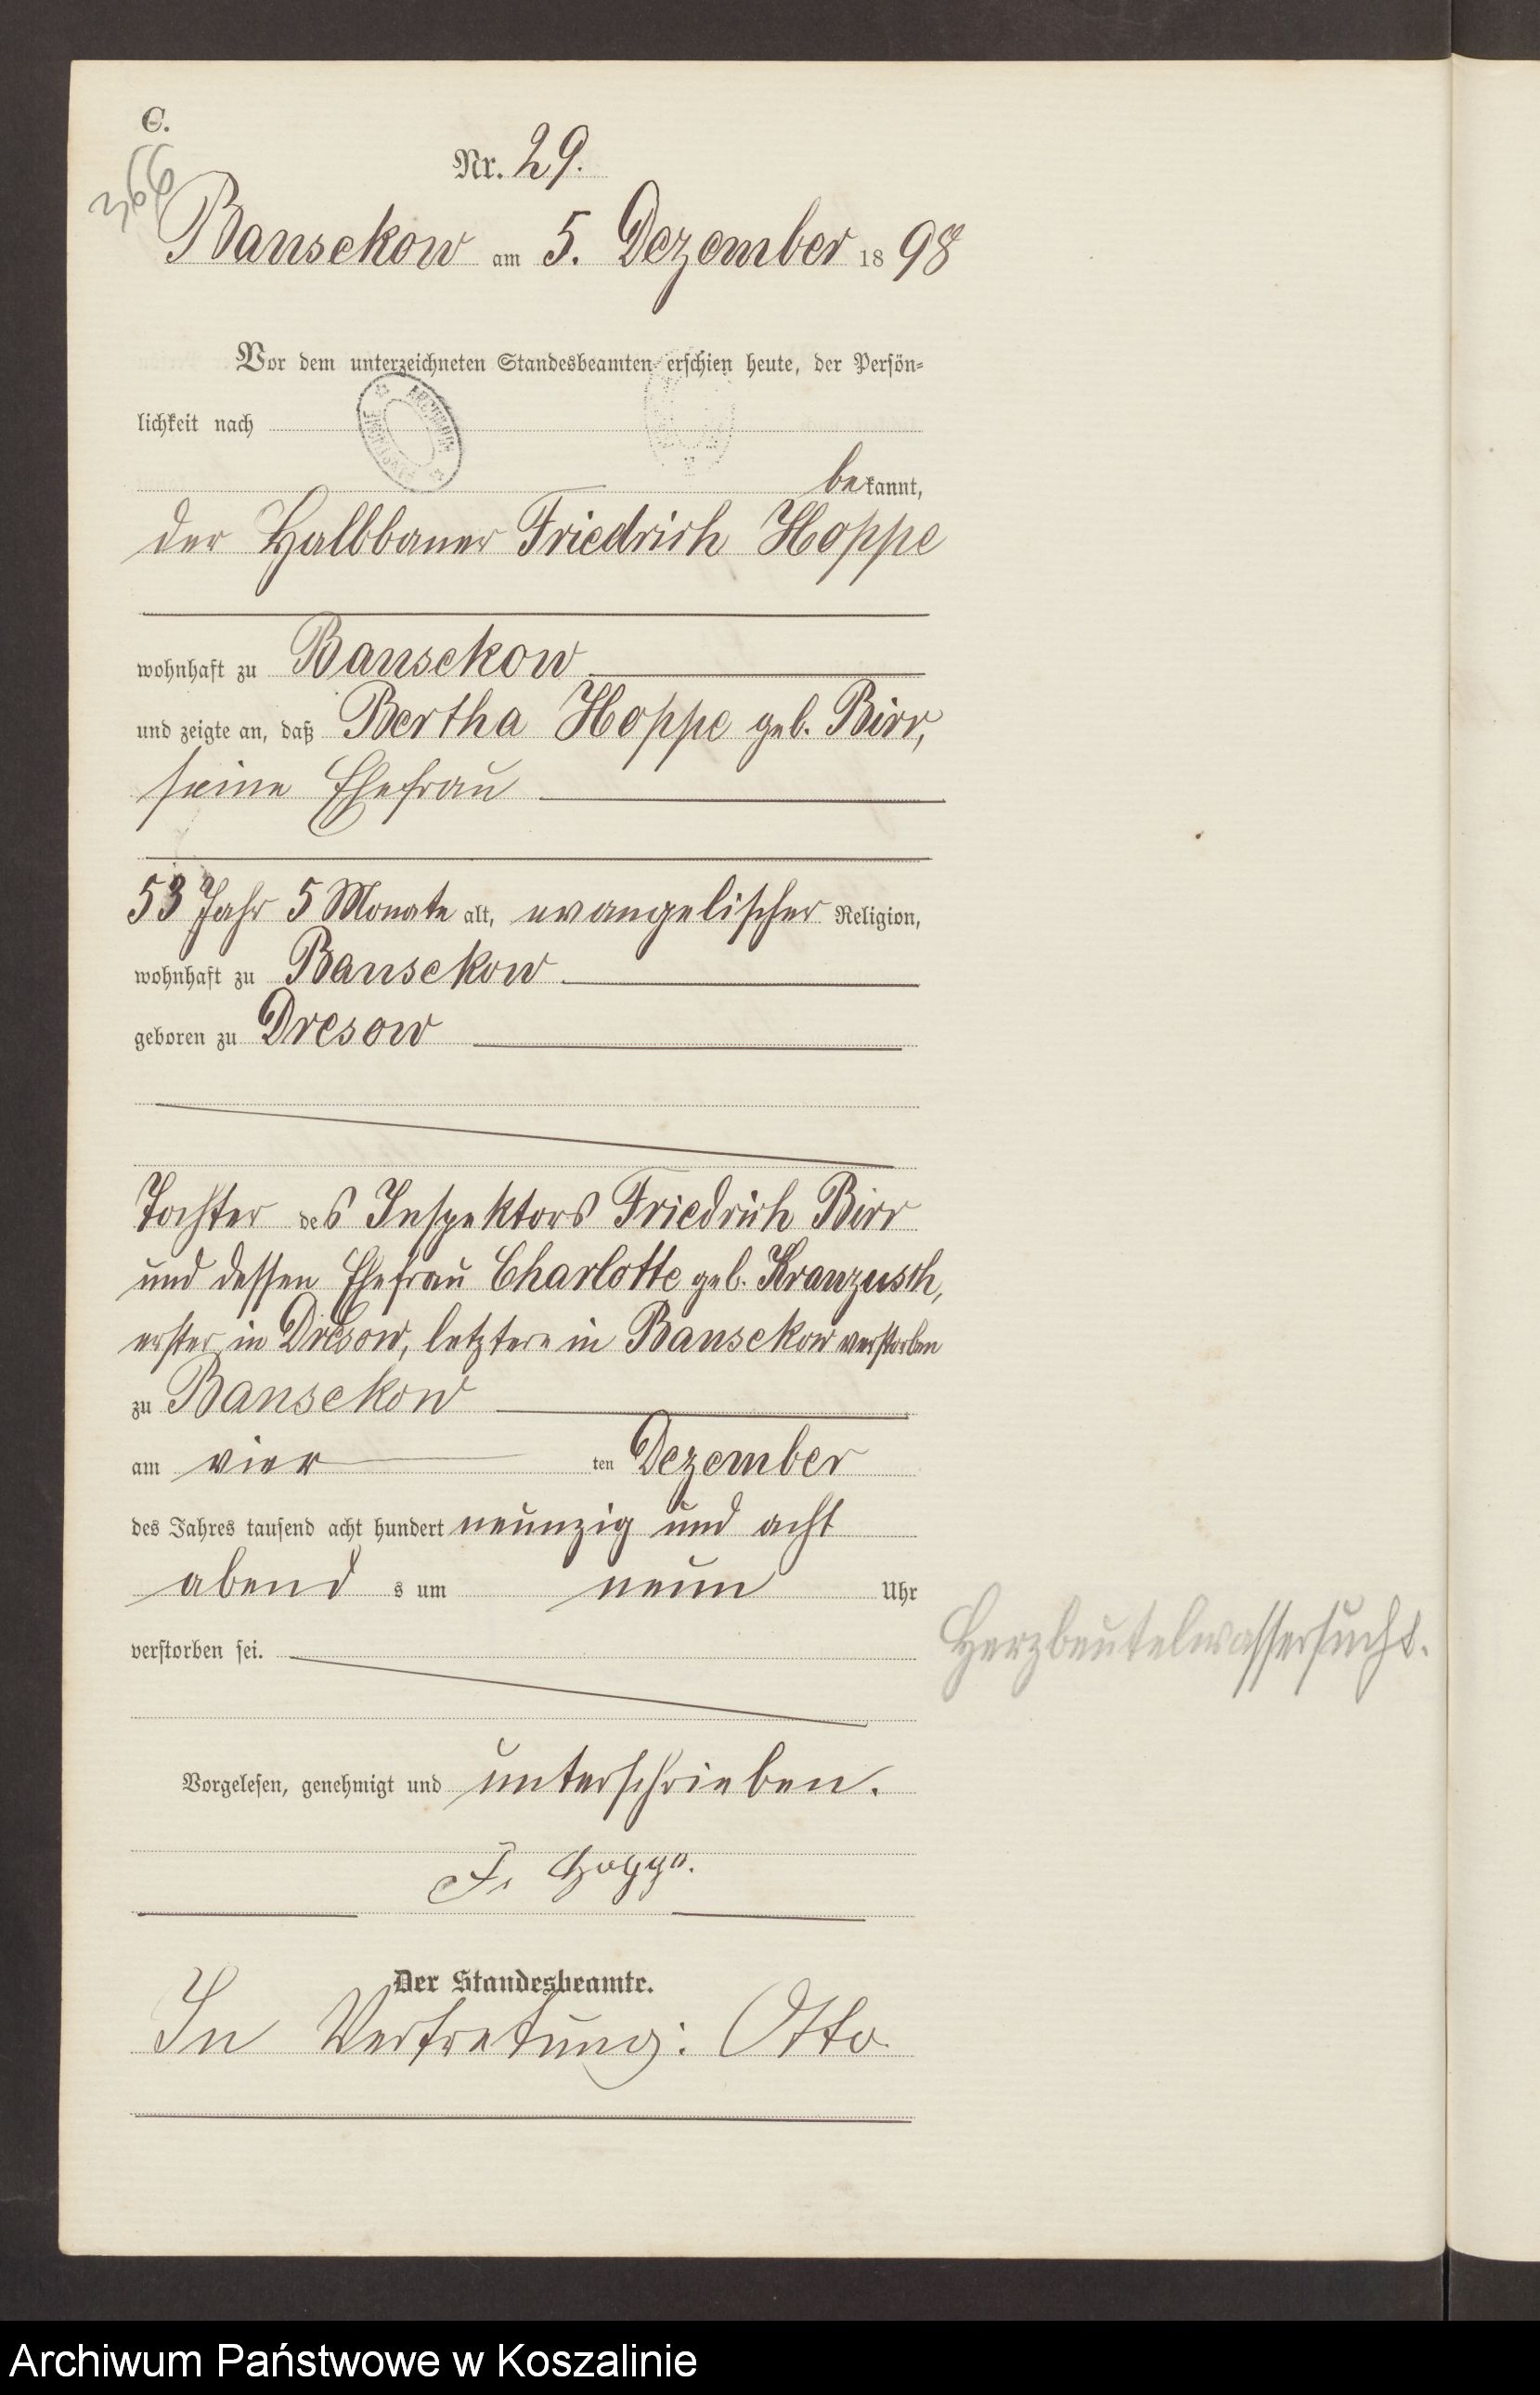 C.
366
Nr. 29.
Bansekow am 5. Dezember 1898
Vor dem unterzeichneten Standesbeamten erschien heute, der Persön-
lichkeit nach
bekannt,
der Halbbauer Friedrich Hoppe
wohnhaft zu Bansekow
und zeigte an, daß Bertha Hoppe geb. Birr,
seine Ehefrau
53 Jahr 5 Monate alt, evangelischer Religion,
wohnhaft zu Bansekow
geboren zu Dresow
Tochter des Inspektors Friedrich Birr
und dessen Ehefrau Charlotte geb. Kranzusch,
erster in Dresow, letztere in Bansekow verstorben
zu Bansekow
am vier ten Dezember
des Jahres tausend acht hundert neunzig und acht
abend s um neun Uhr
Herzbeutelwassersucht.
verstorben sei.
Vorgelesen, genehmigt und unterschrieben.
F. Hoppe.
Der Standesbeamte.
In Vertretung: Otto
Archiwum Państwowe w Koszalinie